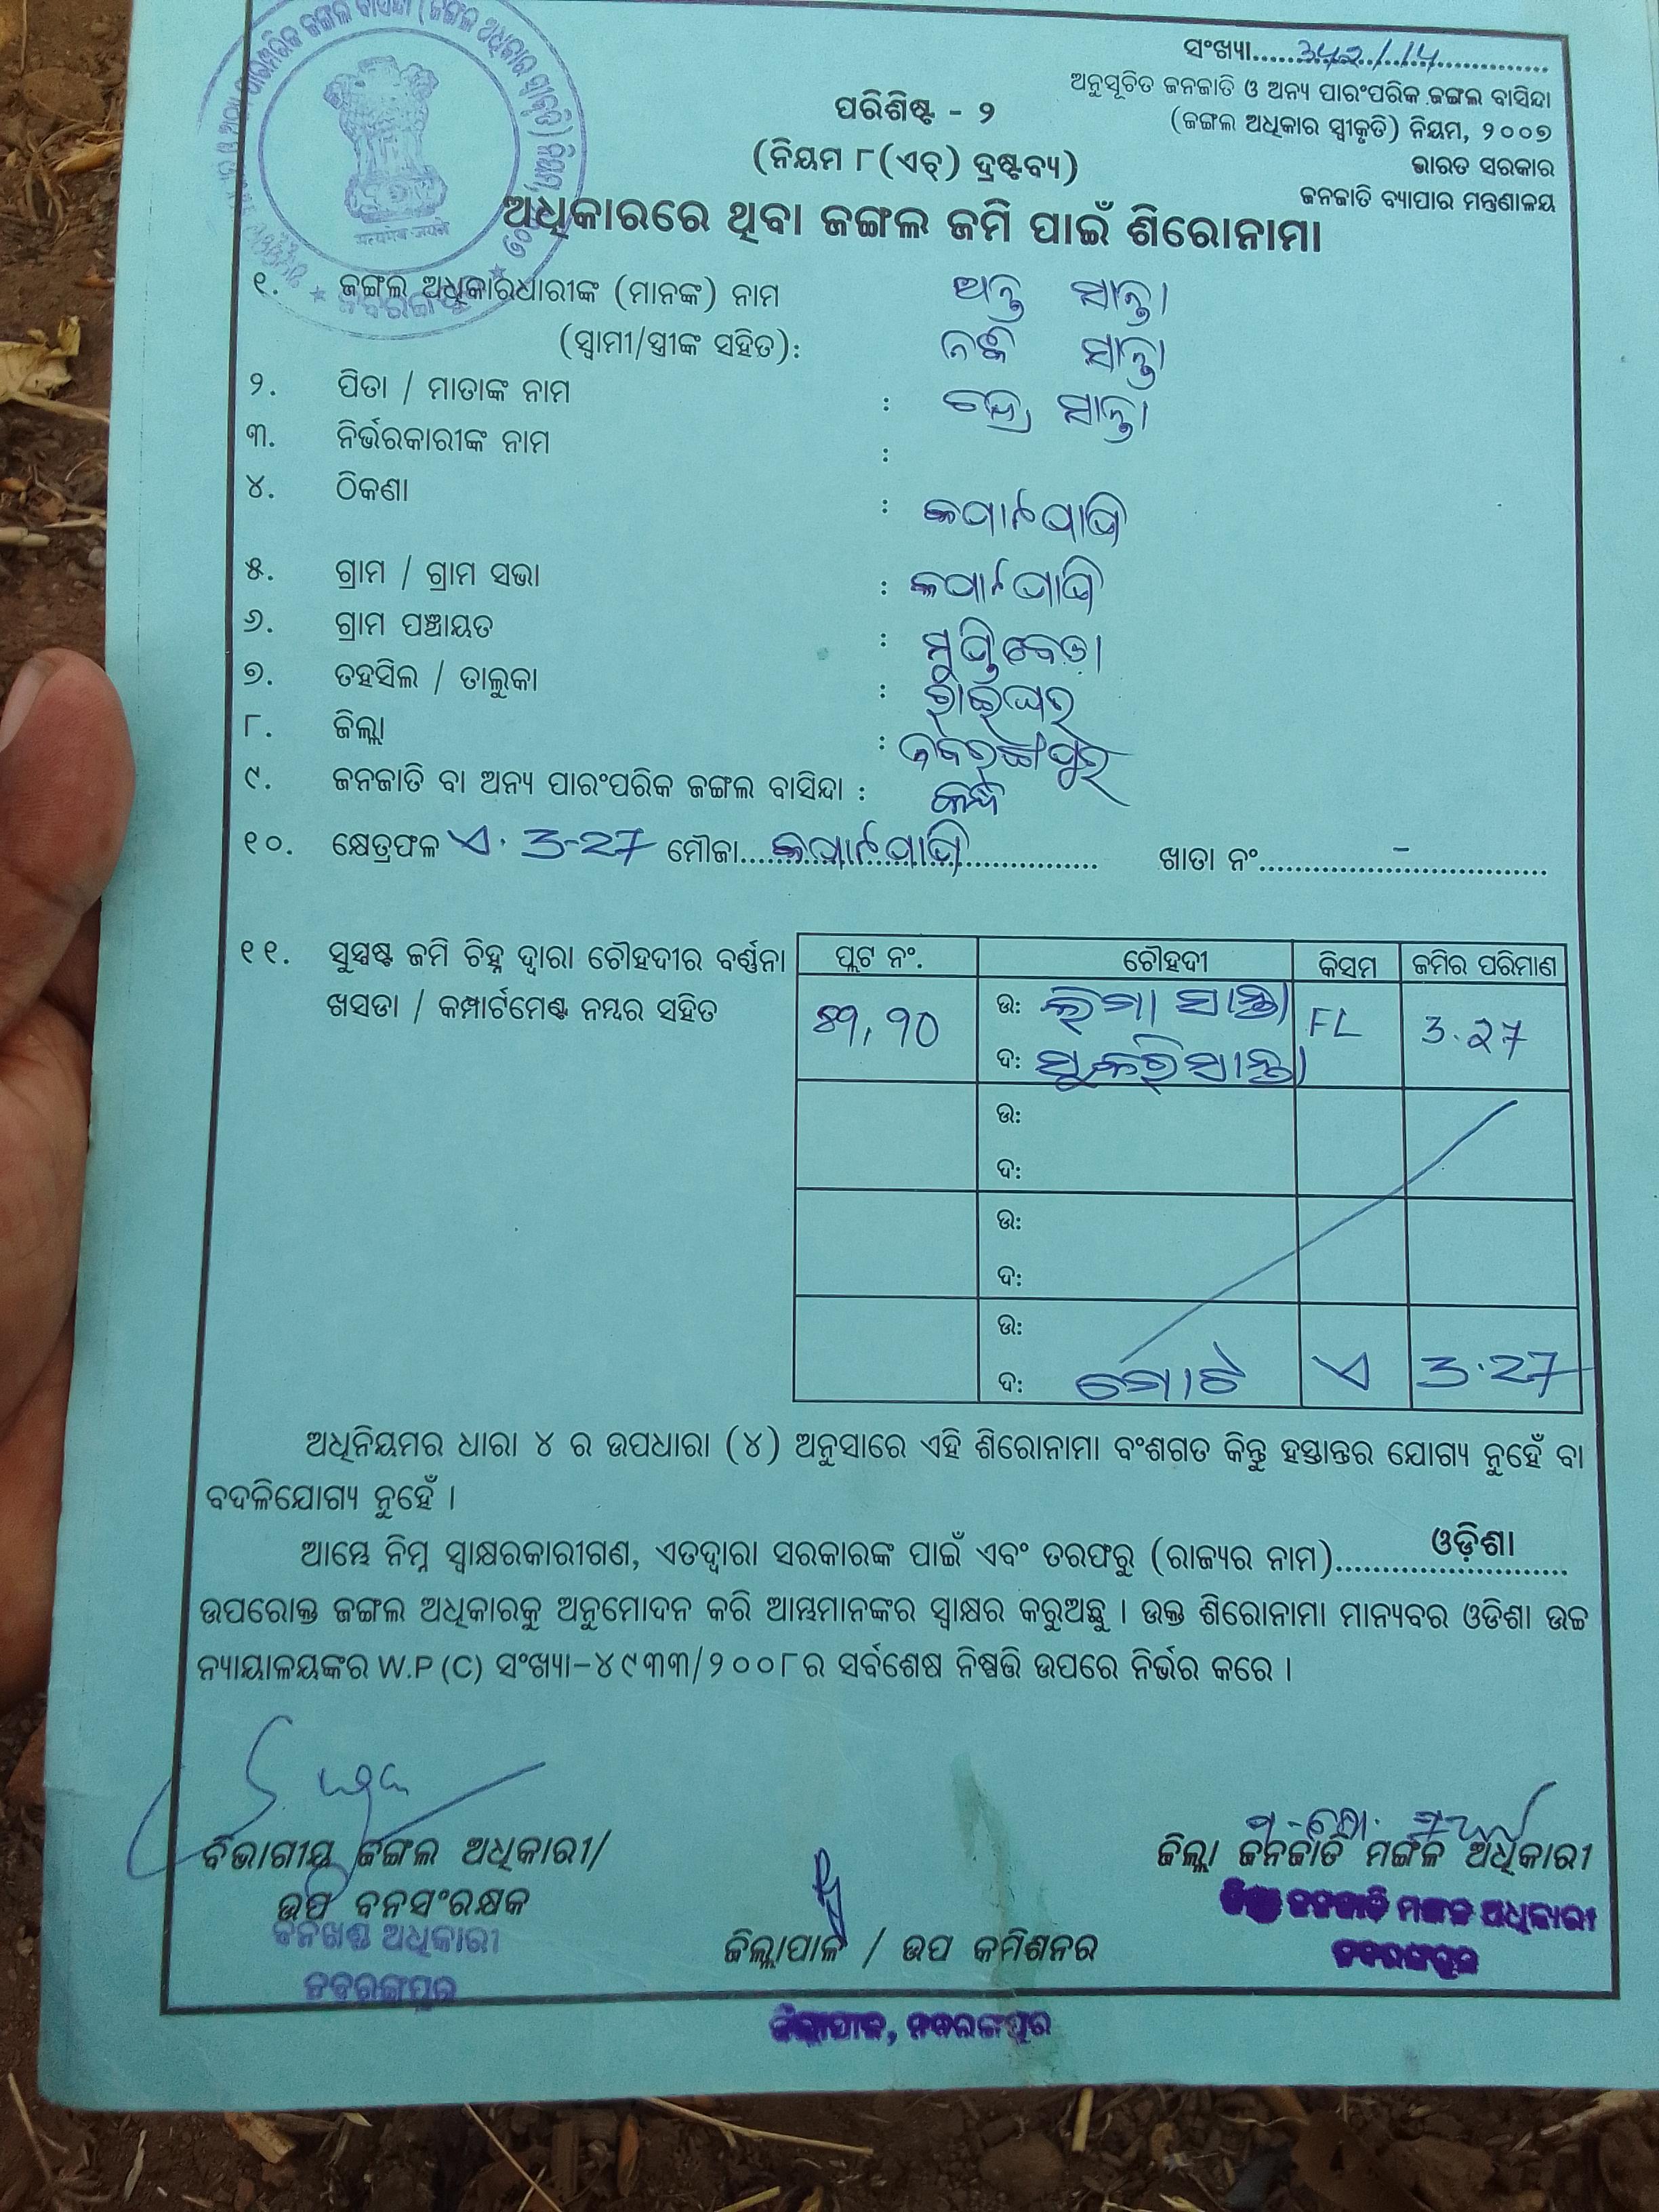 ସଂଖ୍ୟା..........342/14..........
ଅନୁସୂଚିତ ଜନଜାତି ଓ ଅନ୍ୟ ପାରଂପରିକ ଜଙ୍ଗଲ ବାସିନ୍ଦା
(ଜଙ୍ଗଲ ଅଧିକାର ସ୍ୱୀକୃତି) ନିୟମ, ୨୦୦୭
ଭାରତ ସରକାର
ଜନଜାତି ବ୍ୟାପାର ମନ୍ତ୍ରଣାଳୟ
ପରିଶିଷ୍ଟ - ୨
(ନିୟମ ୮(ଏଚ୍) ଦ୍ରଷ୍ଟବ୍ୟ)
ଅଧିକାରରେ ଥିବା ଜଙ୍ଗଲ ଜମି ପାଇଁ ଶିରୋନାମା
୧. ଜଙ୍ଗଲ ଅଧିକାରଧାରୀଙ୍କ (ମାନଙ୍କ) ନାମ ଅନ୍ତୁ ସାନ୍ତା
(ସ୍ୱାମୀ/ସ୍ତ୍ରୀଙ୍କ ସହିତ): ସାନ୍ତା
୨. ପିତା / ମାତାଙ୍କ ନାମ : ସାନ୍ତା
୩. ନିର୍ଭରକାରୀଙ୍କ ନାମ :
୪. ଠିକଣା :
୫. ଗ୍ରାମ / ଗ୍ରାମ ସଭା :
୬. ଗ୍ରାମ ପଞ୍ଚାୟତ :
୭. ତହସିଲ / ତାଲୁକା : ରାଇଘର
୮. ଜିଲ୍ଲା : ନବରଙ୍ଗପୁର
୯. ଜନଜାତି ବା ଅନ୍ୟ ପାରଂପରିକ ଜଙ୍ଗଲ ବାସିନ୍ଦା : କନ୍ଧ
୧୦. କ୍ଷେତ୍ରଫଳ ଏ. 3-27 ମୌଜା.......... ଖାତା ନଂ..........-..........
୧୧. ସୁସ୍ପଷ୍ଟ ଜମି ଚିହ୍ନ ଦ୍ୱାରା ଚୌହଦୀର ବର୍ଣ୍ଣନା
ଖସଡା / କମ୍ପାର୍ଟମେଣ୍ଟ ନମ୍ବର ସହିତ
ପ୍ଲଟ ନଂ. ଚୌହଦୀ କିସମ ଜମିର ପରିମାଣ
ଉ: ସାନ୍ତା FL 3.27
ଦ: ସୁକରି ସାନ୍ତା
ଉ:
ଦ:
ଉ:
ଦ:
ଉ:
ଦ: ମୋଟ ଏ 3.27
ଅଧିନିୟମର ଧାରା ୪ ର ଉପଧାରା (୪) ଅନୁସାରେ ଏହି ଶିରୋନାମା ବଂଶଗତ କିନ୍ତୁ ହସ୍ତାନ୍ତର ଯୋଗ୍ୟ ନୁହେଁ ବା
ବଦଳିଯୋଗ୍ୟ ନୁହେଁ ।
ଆମ୍ଭେ ନିମ୍ନ ସ୍ୱାକ୍ଷରକାରୀଗଣ, ଏତଦ୍ୱାରା ସରକାରଙ୍କ ପାଇଁ ଏବଂ ତରଫରୁ (ରାଜ୍ୟର ନାମ)..........ଓଡ଼ିଶା..........
ଉପରୋକ୍ତ ଜଙ୍ଗଲ ଅଧିକାରକୁ ଅନୁମୋଦନ କରି ଆମ୍ଭମାନଙ୍କର ସ୍ୱାକ୍ଷର କରୁଅଛୁ । ଉକ୍ତ ଶିରୋନାମା ମାନ୍ୟବର ଓଡିଶା ଉଚ୍ଚ
ନ୍ୟାୟାଳୟଙ୍କର W.P (C) ସଂଖ୍ୟା-୪୯୩୩/୨୦୦୮ର ସର୍ବଶେଷ ନିଷ୍ପତ୍ତି ଉପରେ ନିର୍ଭର କରେ ।
ବିଭାଗୀୟ ଜଙ୍ଗଲ ଅଧିକାରୀ/
ଉପ ବନସଂରକ୍ଷକ
ବନଖଣ୍ଡ ଅଧିକାରୀ
ନବରଙ୍ଗପୁର
ଜିଲ୍ଲାପାଳ / ଉପ କମିଶନର
ଜିଲ୍ଲାପାଳ, ନବରଙ୍ଗପୁର
ଜିଲ୍ଲା ଜନଜାତି ମଙ୍ଗଳ ଅଧିକାରୀ
ଜିଲ୍ଲା ଜନଜାତି ମଙ୍ଗଳ ଅଧିକାରୀ
ନବରଙ୍ଗପୁର